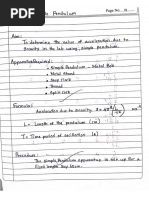 Simple Pendulum
Page No. 18
Aim:
To determine the value of acceleration due to
gravity in the lab using simple pendulum.
Apparatus Required:
• Simple Pendulum - Metal Bob
• Metal Stand
• Stop Clock
• Thread
• Meter Scale
Formula:
Acceleration due to gravity g = 4π² (L/T²) ms⁻²
L → Length of the pendulum (m)
T → Time period of oscillation (s)
Procedure:
The simple pendulum apparatus is set up for a